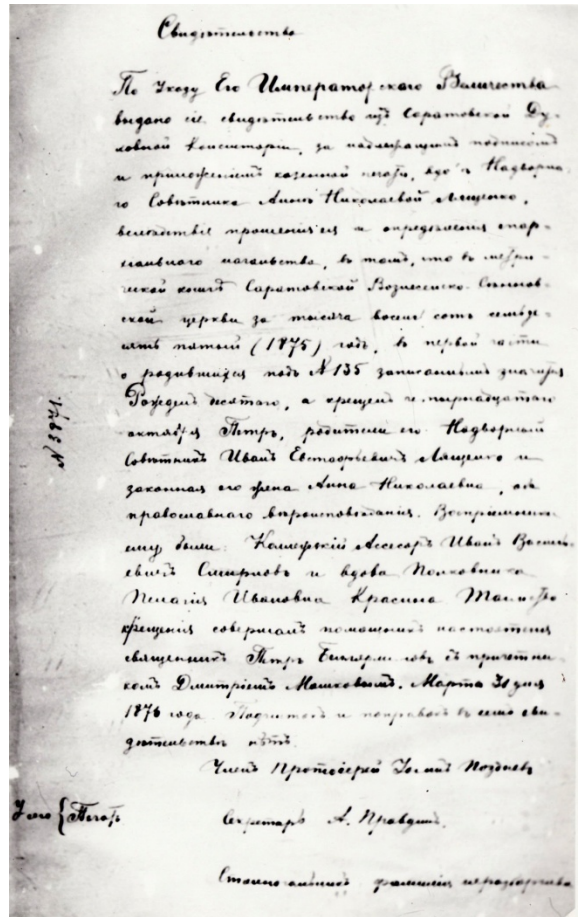 Свидѣтельство
По Указу Его Императорскаго Величества
выдано сіе свидѣтельство изъ Саратовской Ду-
ховной Консисторіи, за надлежащимъ подписомъ
и приложеніемъ казенной печати, вдовѣ Надворна-
го Совѣтника Аннѣ Николаевой Лященко,
вслѣдствіе прошенія ея и опредѣленія епар-
хіальнаго начальства, въ томъ, что въ метри-
ческой книгѣ Саратовской Вознесенско-Сѣнновс-
кой церкви за тысяча восемь сотъ семьде-
сятъ пятый (1875) годъ, въ первой части
о родившихся подъ № 135 записаннымъ значится
Рожденъ десятаго, а крещенъ четырнадцатаго
октября Петръ, родители его: Надворный
Совѣтникъ Иванъ Евстафьевичъ Лященко и
законная его жена Анна Николаевна, оба
православнаго вѣроисповѣданія. Воспріемники
ему были: Коллежскій Ассесоръ Иванъ Василь-
евичъ Смирновъ и вдова Полковника
Пелагія Ивановна Красина Таинство
крещенія совершалъ помощникъ настоятеля
священникъ Петръ съ причетни-
комъ Дмитріемъ Мошковымъ. Марта 30 дня
1876 года. Подчистокъ и поправокъ въ семъ сви-
дѣтельствѣ нѣтъ.
Членъ Протоіерей Іоаннъ Позднев
Секретарь А. Правдинъ.
Столоначальникъ фамилія неразборчива
У сего { Печать
№ 3971.